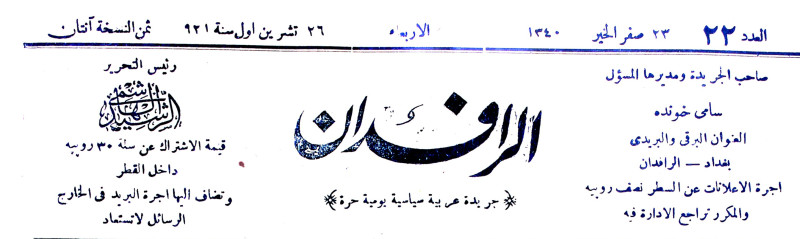 العدد ٢٢ ٢٣ صفر الخير ١٣٤٠ الاربعاء ٢٦ تشرين اول سنة ٩٢١ ثمن النسخة آنتان
صاحب الجريدة ومديرها المسؤل
سامي خونده
العنوان البرقي والبريدي
بغداد — الرافدان
اجرة الاعلانات عن السطر نصف روبيه
والمكرر تراجع الادارة فيه
الرافدان
﴿ جريدة عربية سياسية يومية حرة ﴾
رئيس التحرير
الهاشمي
قيمة الاشتراك عن سنة ٣٠ روبيه
داخل القطر
وتضاف اليها اجرة البريد في الخارج
الرسائل لاتستعاد